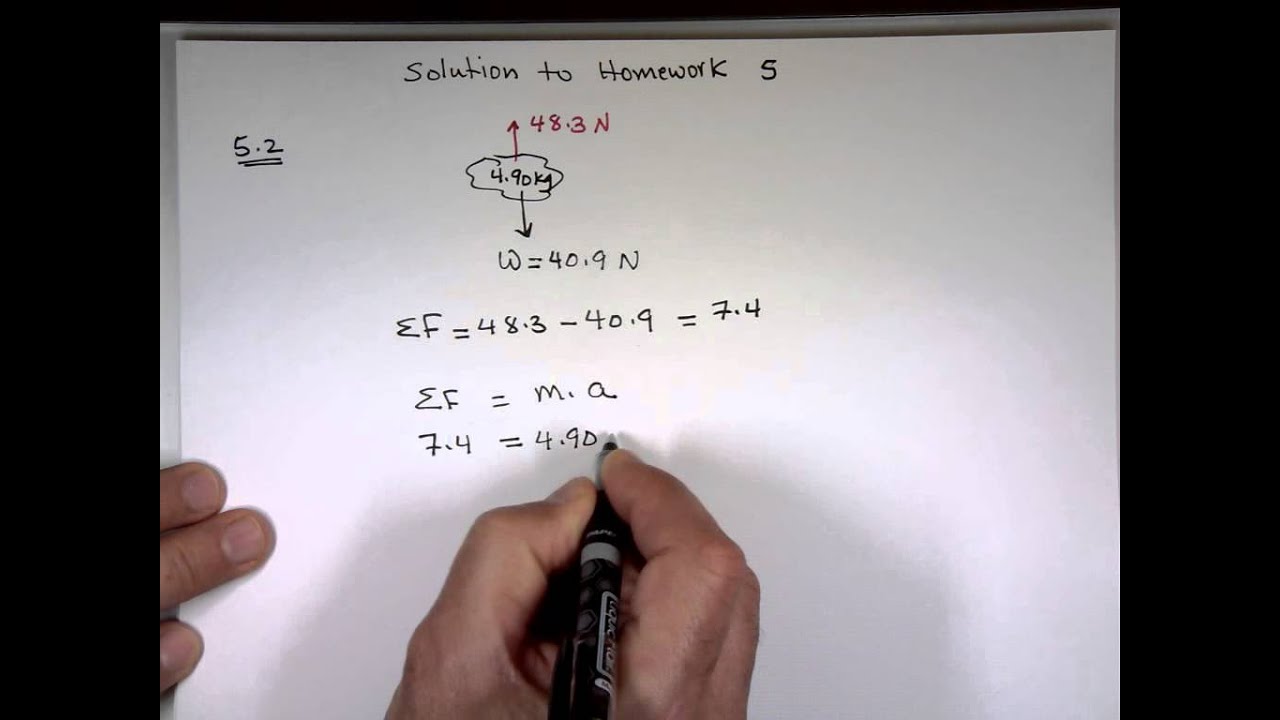 Solution to Homework 5
5.2
48.3 N
4.90kg
W = 40.9 N
ΣF = 48.3 - 40.9 = 7.4
ΣF = m. a
7.4 = 4.90